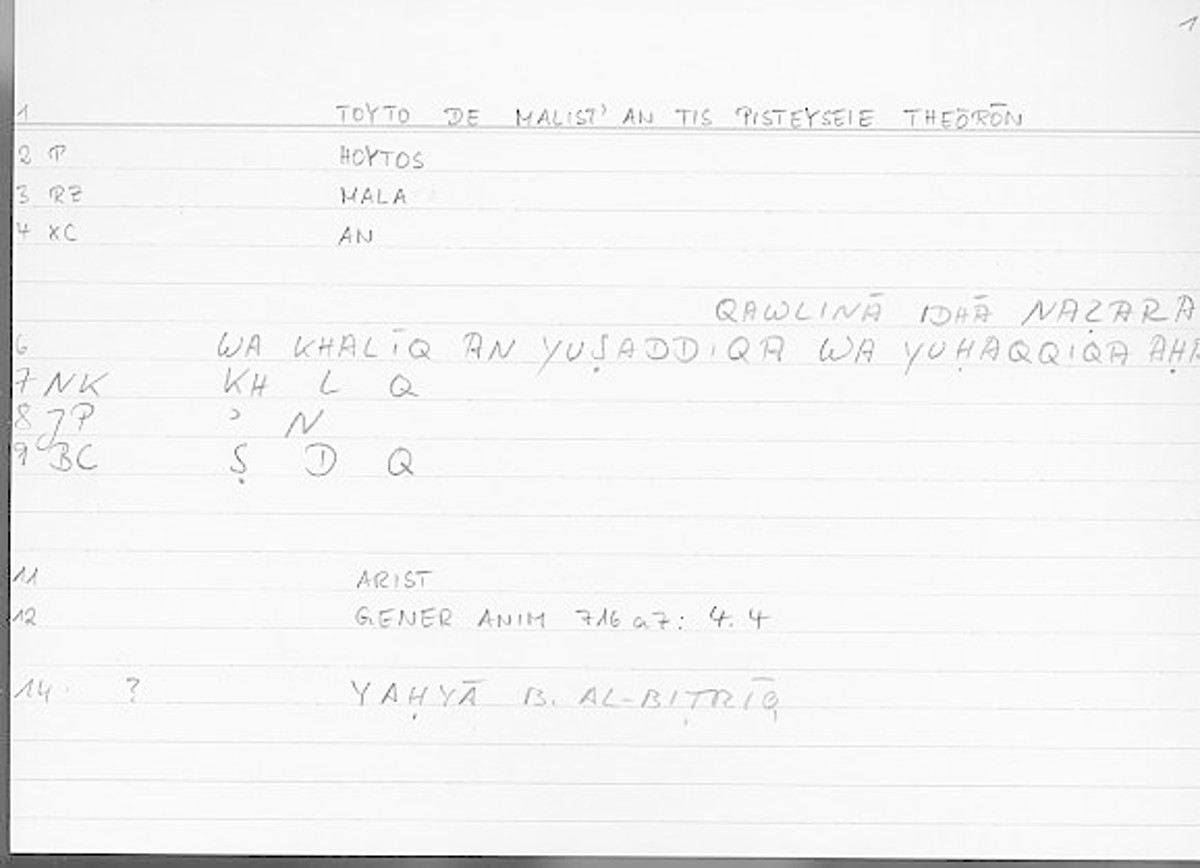 1
1 TOYTO DE MALIST' AN TIS PISTEYSEIE THEŌRŌN
2 P HOYTOS
3 RZ MALA
4 XC AN
QAWLINĀ IDHĀ NAẒARA
6 WA KHALĪQ AN YUṢADDIQA WA YUḤAQQIQA
7 NK KH L Q
8 JP ʾ N
9 BC Ṣ D Q
11 ARIST
12 GENER ANIM 716 a 7: 4. 4
14 ? YAḤYĀ B. AL-BIṬRĪQ